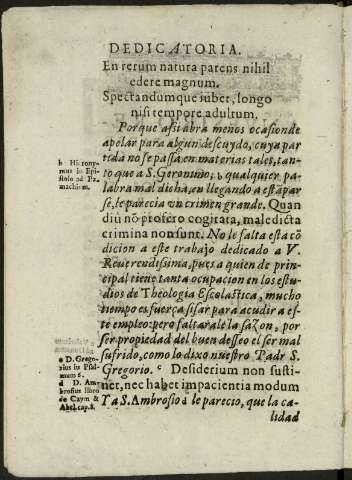 DEDICATORIA.
En rerum natura parens nihil
edere magnum.
Spectandumque iubet, longo
nisi tempore adultum.
Porque assi abra menos ocasion de
apelar para algun descuydo, cuya par
tida no se passa en materias tales, tan-
to que a S. Geronimo, b qualquier pa-
labra mal dicha, en llegando a estãpar
se, le parecia vn crimen grande. Quan
diu nõ profero cogitata, maledicta
crimina non sunt. No le falta esta cõ
dicion a este trabajo dedicado a V.
Reuerendissima, pues a quien de prin-
cipal tiene tanta ocupacion en los estu-
dios de Theologia Escolastica, mucho
tiempo es fuerça sisar para acudir a es-
te empleo: pero faltarale la sazon, por
ser propiedad del buen desseo el ser mal
sufrido, como lo dixo nuestro Padr S.
Gregorio. c Desiderium non susti-
net, nec habet impacientia modum
Y a S. Ambrosio d le parecio, que la ca-
lidad
b Hierony-
mus in Epi-
stola ad Pa-
machium.
c D. Grego-
rius in Psal-
mum 6.
d D. Am-
brosius libro
de Caym &
Abel, cap. 8.